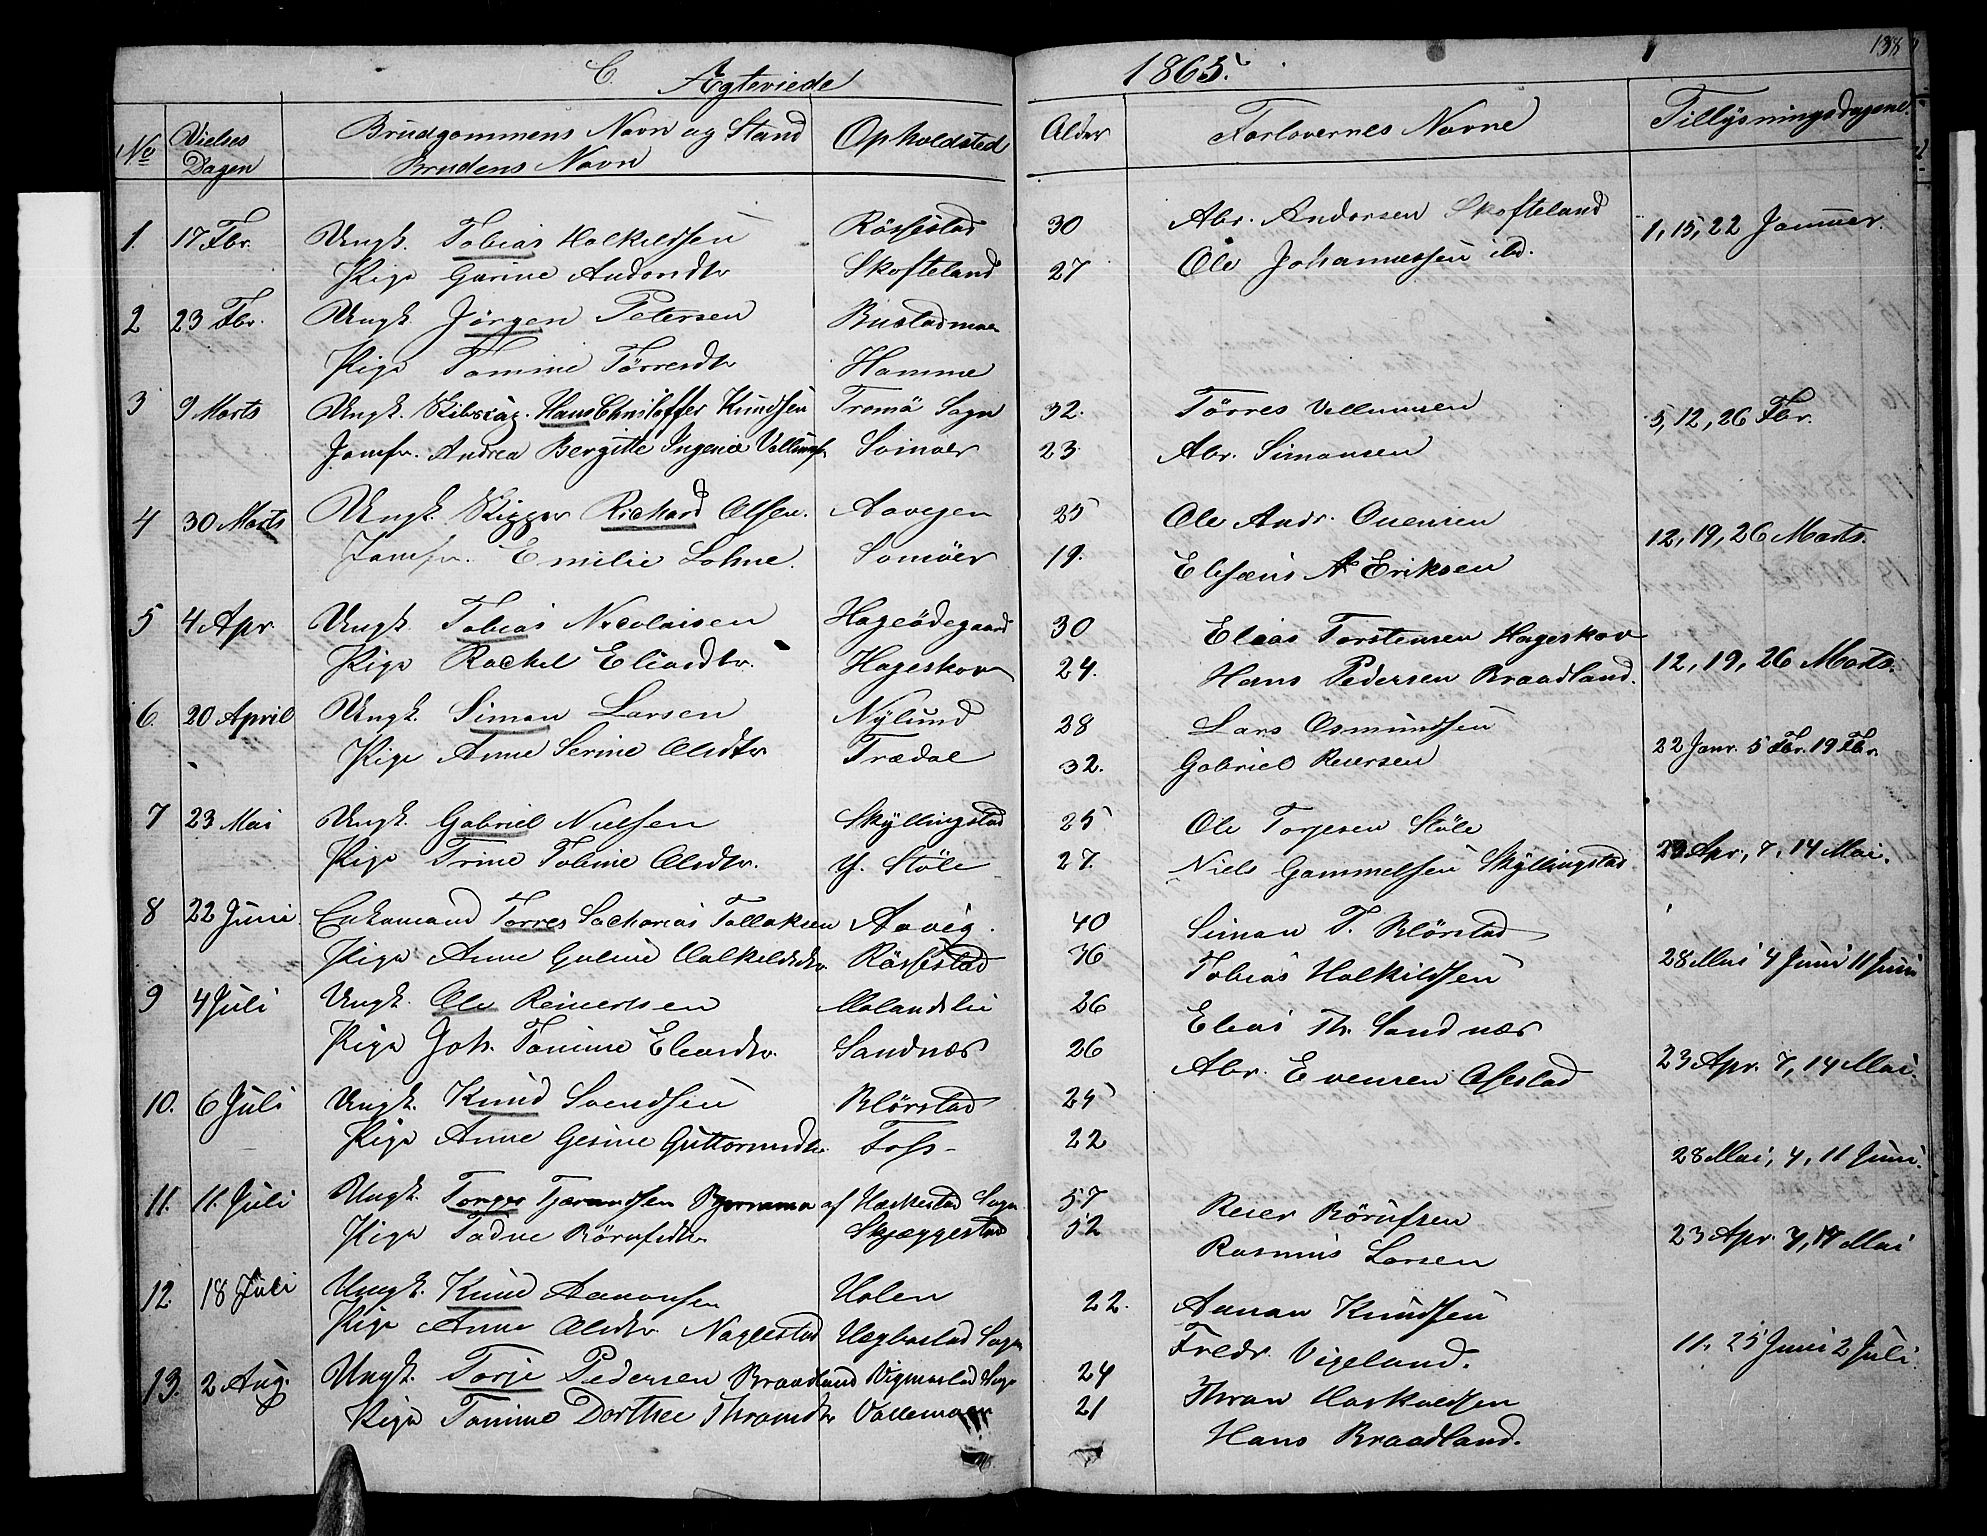 138
C. Ægteviede 1865.
No Vielses Dagen Brudgommens Navn og Stand Brudens Navn Opholdsted Alder Forlovernes Navne Tillysningsdagene.
1. 17 Fbr. Ungk. Tobias Halkildsen Røssestad 30 Abr. Andersen Skofteland 1, 15, 22 Januer.
Pige Gurine Andersdtr Skofteland 27 Ole Johannessen ibd.
2 23 Fbr. Ungk. Jørgen Petersen Bustadmoen
Pige Tomine Tørresdtr Homme
3 9 Marts Ungk. Hans Christoffer Knudsen Tromø Sogn 32. Tørres Vellumsen 5, 12, 26 Fbr.
Jomfr. Andrea Bergitte Ingerie Svinøer 23. Abr. Simonsen
4 30 Marts Ungk. Skipper Richard Olsen. Aavigen 25 Ole Andr. Ouensen 12, 19, 26 Marts.
Jomfr. Emilie Lohne. Svinøer 19. Elisæus A Eriksen
5 4 Apr Ungk. Tobias Nicolaisen Hageødegaard 30 Elias Torstensen Hageskov 12, 19, 26 Marts.
Pige Rachel Eliasdtr. Hageskov 24. Hans Pedersen Braadland.
6. 20 April Ungk. Simon Larsen Nylund 28 Lars Osmundsen 22 Janr. 5 Fbr. 19 Fbr.
Pige Anne Serine Olsdtr Trædal 32. Gabriel Reiersen
7 23 Mai Ungk. Gabriel Nielsen Skyllingstad 25 Ole Torjesen Støle 23 Apr, 7, 14 Mai.
Pige Trine Tobine Olsdtr. Y. Støle 27. Niels Gammelsen Skyllingstad
8 22 Juni Enkemand Tørres Sacharias Tollaksen Aavig. 40 Simon T. Blørstad 28 Mai 4 Juni 11 Juni
Pige Anne Guline Halkildsdtr Røssestad 36 Tobias Halkildsen
9 4 Juli Ungk. Ole Reinertsen Udlandslii 26 Elias Th. Sandnæs 23 Apr. 7, 14 Mai.
Pige Joh. Tomine Eliasdtr. Sandnæs 26 Abr. Evensen Osestad
10. 6 Juli Ungk. Knud Svendsen Blørstad 25 28 Mai, 4, 11 Juni.
Pige Anne Gesine Guttormsdtr Foss 22
11. 11. Juli Ungk. Torger Tjerandsen af Hækkestad Sogn 57 Reier Børufsen 23 Apr. 7, 14 Mai
Pige Tadne Børufsdtr Skjeggestad 52 Rasmus Larsen
12. 18 Juli Ungk. Knud Aanonsen Holen 22. Aanon Knudsen 11, 25 Juni 2 Juli.
Pige Anne Olsdtr Naglestad Hægbostad Sogn Fredr. Vigeland.
13. 2 Aug. Ungk. Torje Pedersen Braadland Vigmostad Sogn 24 Thron Haskoldsen
Pige Tomine Dorthee Thronsdtr Vollemoen 21 Hans Braadland.